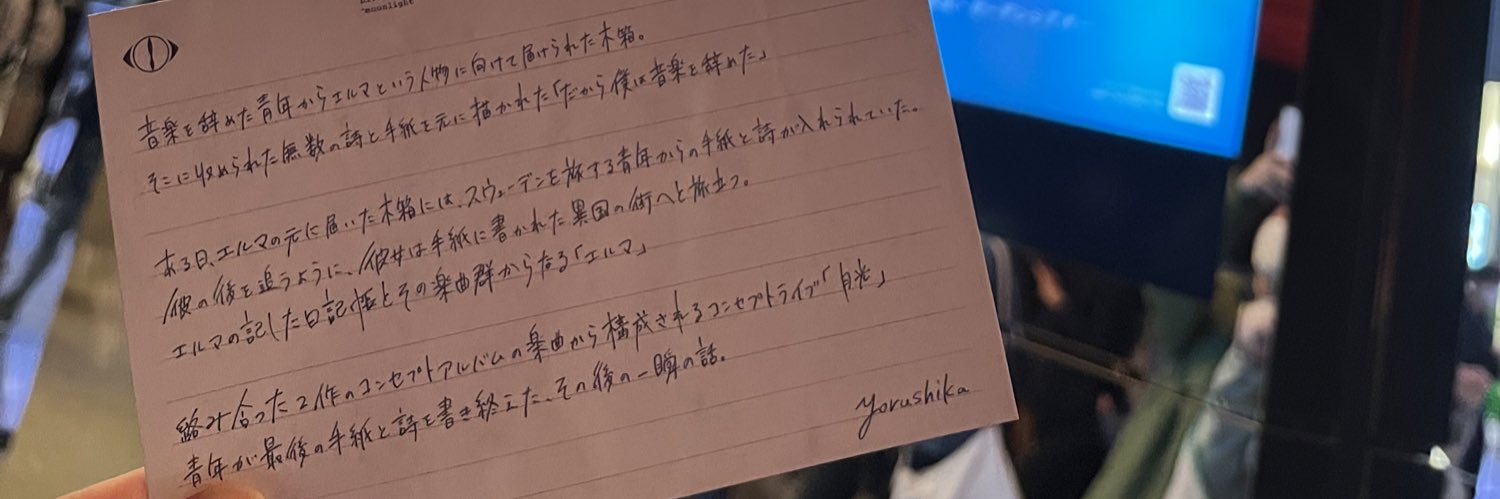 "moonlight
音楽を辞めた青年からエルマという人物に向けて届けられた木箱。
そこに収められた無数の詩と手紙を元に描かれた「だから僕は音楽を辞めた」
ある日、エルマの元に届いた木箱には、スウェーデンを旅する青年からの手紙と詩が入れられていた。
彼の後を追うように、彼女は手紙に書かれた異国の街へと旅立つ。
エルマの記した日記帳とその楽曲群からなる「エルマ」
絡み合った2作のコンセプトアルバムの楽曲から構成されるコンセプトライブ「月光」
青年が最後の手紙と詩を書き終えた、その後の一瞬の話。
yorushika